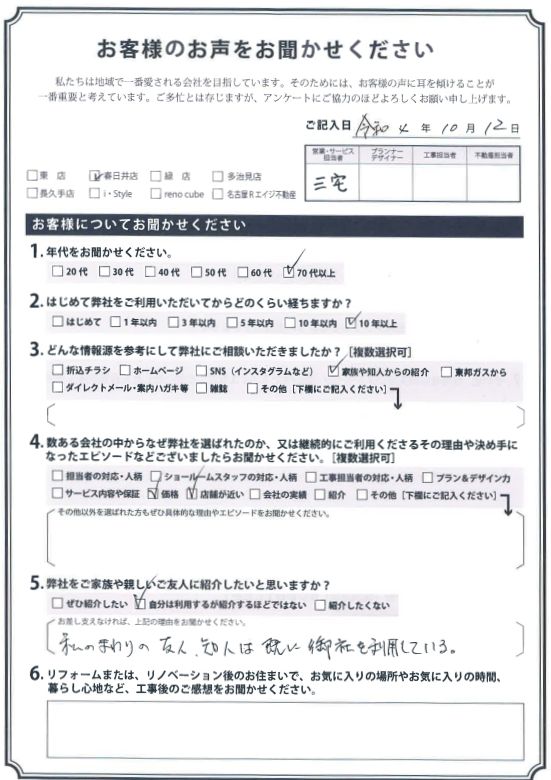 お客様のお声をお聞かせください
私たちは地域で一番愛される会社を目指しています。そのためには、お客様の声に耳を傾けることが
一番重要と考えています。ご多忙とは存じますが、アンケートにご協力のほどよろしくお願い申し上げます。
ご記入日 令和 4 年 10 月 12 日
営業・サービス担当者 プランナーデザイナー 工事担当者 不動産担当者
三宅
□東 店 ☑春日井店 □緑 店 □多治見店
□長久手店 □i・Style □reno cube □名古屋Rエイジ不動産
お客様についてお聞かせください
1. 年代をお聞かせください。
□20代 □30代 □40代 □50代 □60代 ☑70代以上
2. はじめて弊社をご利用いただいてからどのくらい経ちますか？
□はじめて □1年以内 □3年以内 □5年以内 □10年以内 ☑10年以上
3. どんな情報源を参考にして弊社にご相談いただきましたか？［複数選択可］
□折込チラシ □ホームページ □SNS（インスタグラムなど） ☑家族や知人からの紹介 □東邦ガスから
□ダイレクトメール・案内ハガキ等 □雑誌 □その他［下欄にご記入ください］
4. 数ある会社の中からなぜ弊社を選ばれたのか、又は継続的にご利用くださるその理由や決め手に
なったエピソードなどございましたらお聞かせください。［複数選択可］
□担当者の対応・人柄 □ショールームスタッフの対応・人柄 □工事担当者の対応・人柄 □プラン＆デザイン力
□サービス内容や保証 ☑価格 ☑店舗が近い □会社の実績 □紹介 □その他［下欄にご記入ください］
その他以外を選ばれた方もぜひ具体的な理由やエピソードをお聞かせください。
5. 弊社をご家族や親しいご友人に紹介したいと思いますか？
□ぜひ紹介したい ☑自分は利用するが紹介するほどではない □紹介したくない
お差し支えなければ、上記の理由をお聞かせください。
私のまわりの友人、知人は既に御社を利用している。
6. リフォームまたは、リノベーション後のお住まいで、お気に入りの場所やお気に入りの時間、
暮らし心地など、工事後のご感想をお聞かせください。